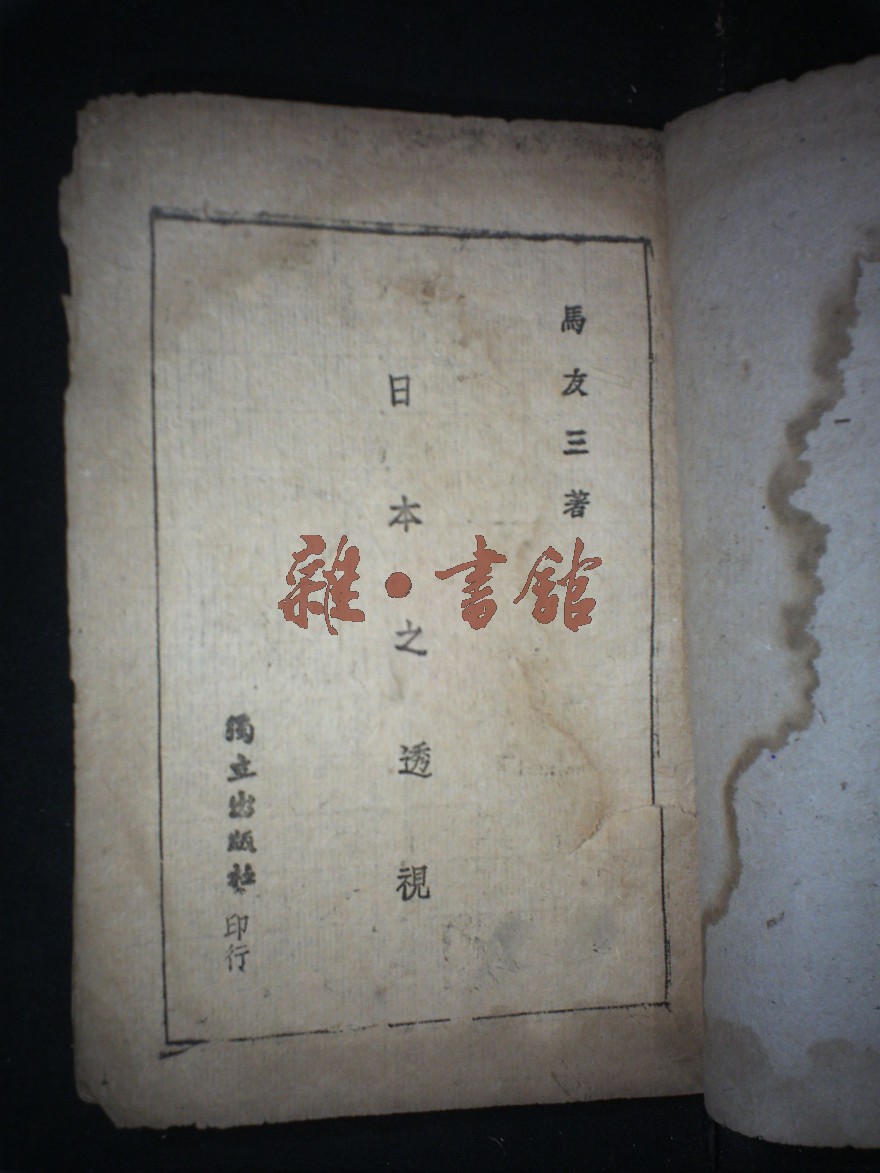 馬友三著
日本之透視
獨立出版社印行
雜·書館